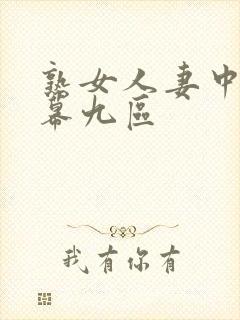 熟女人妻中
幕九區
我有你有